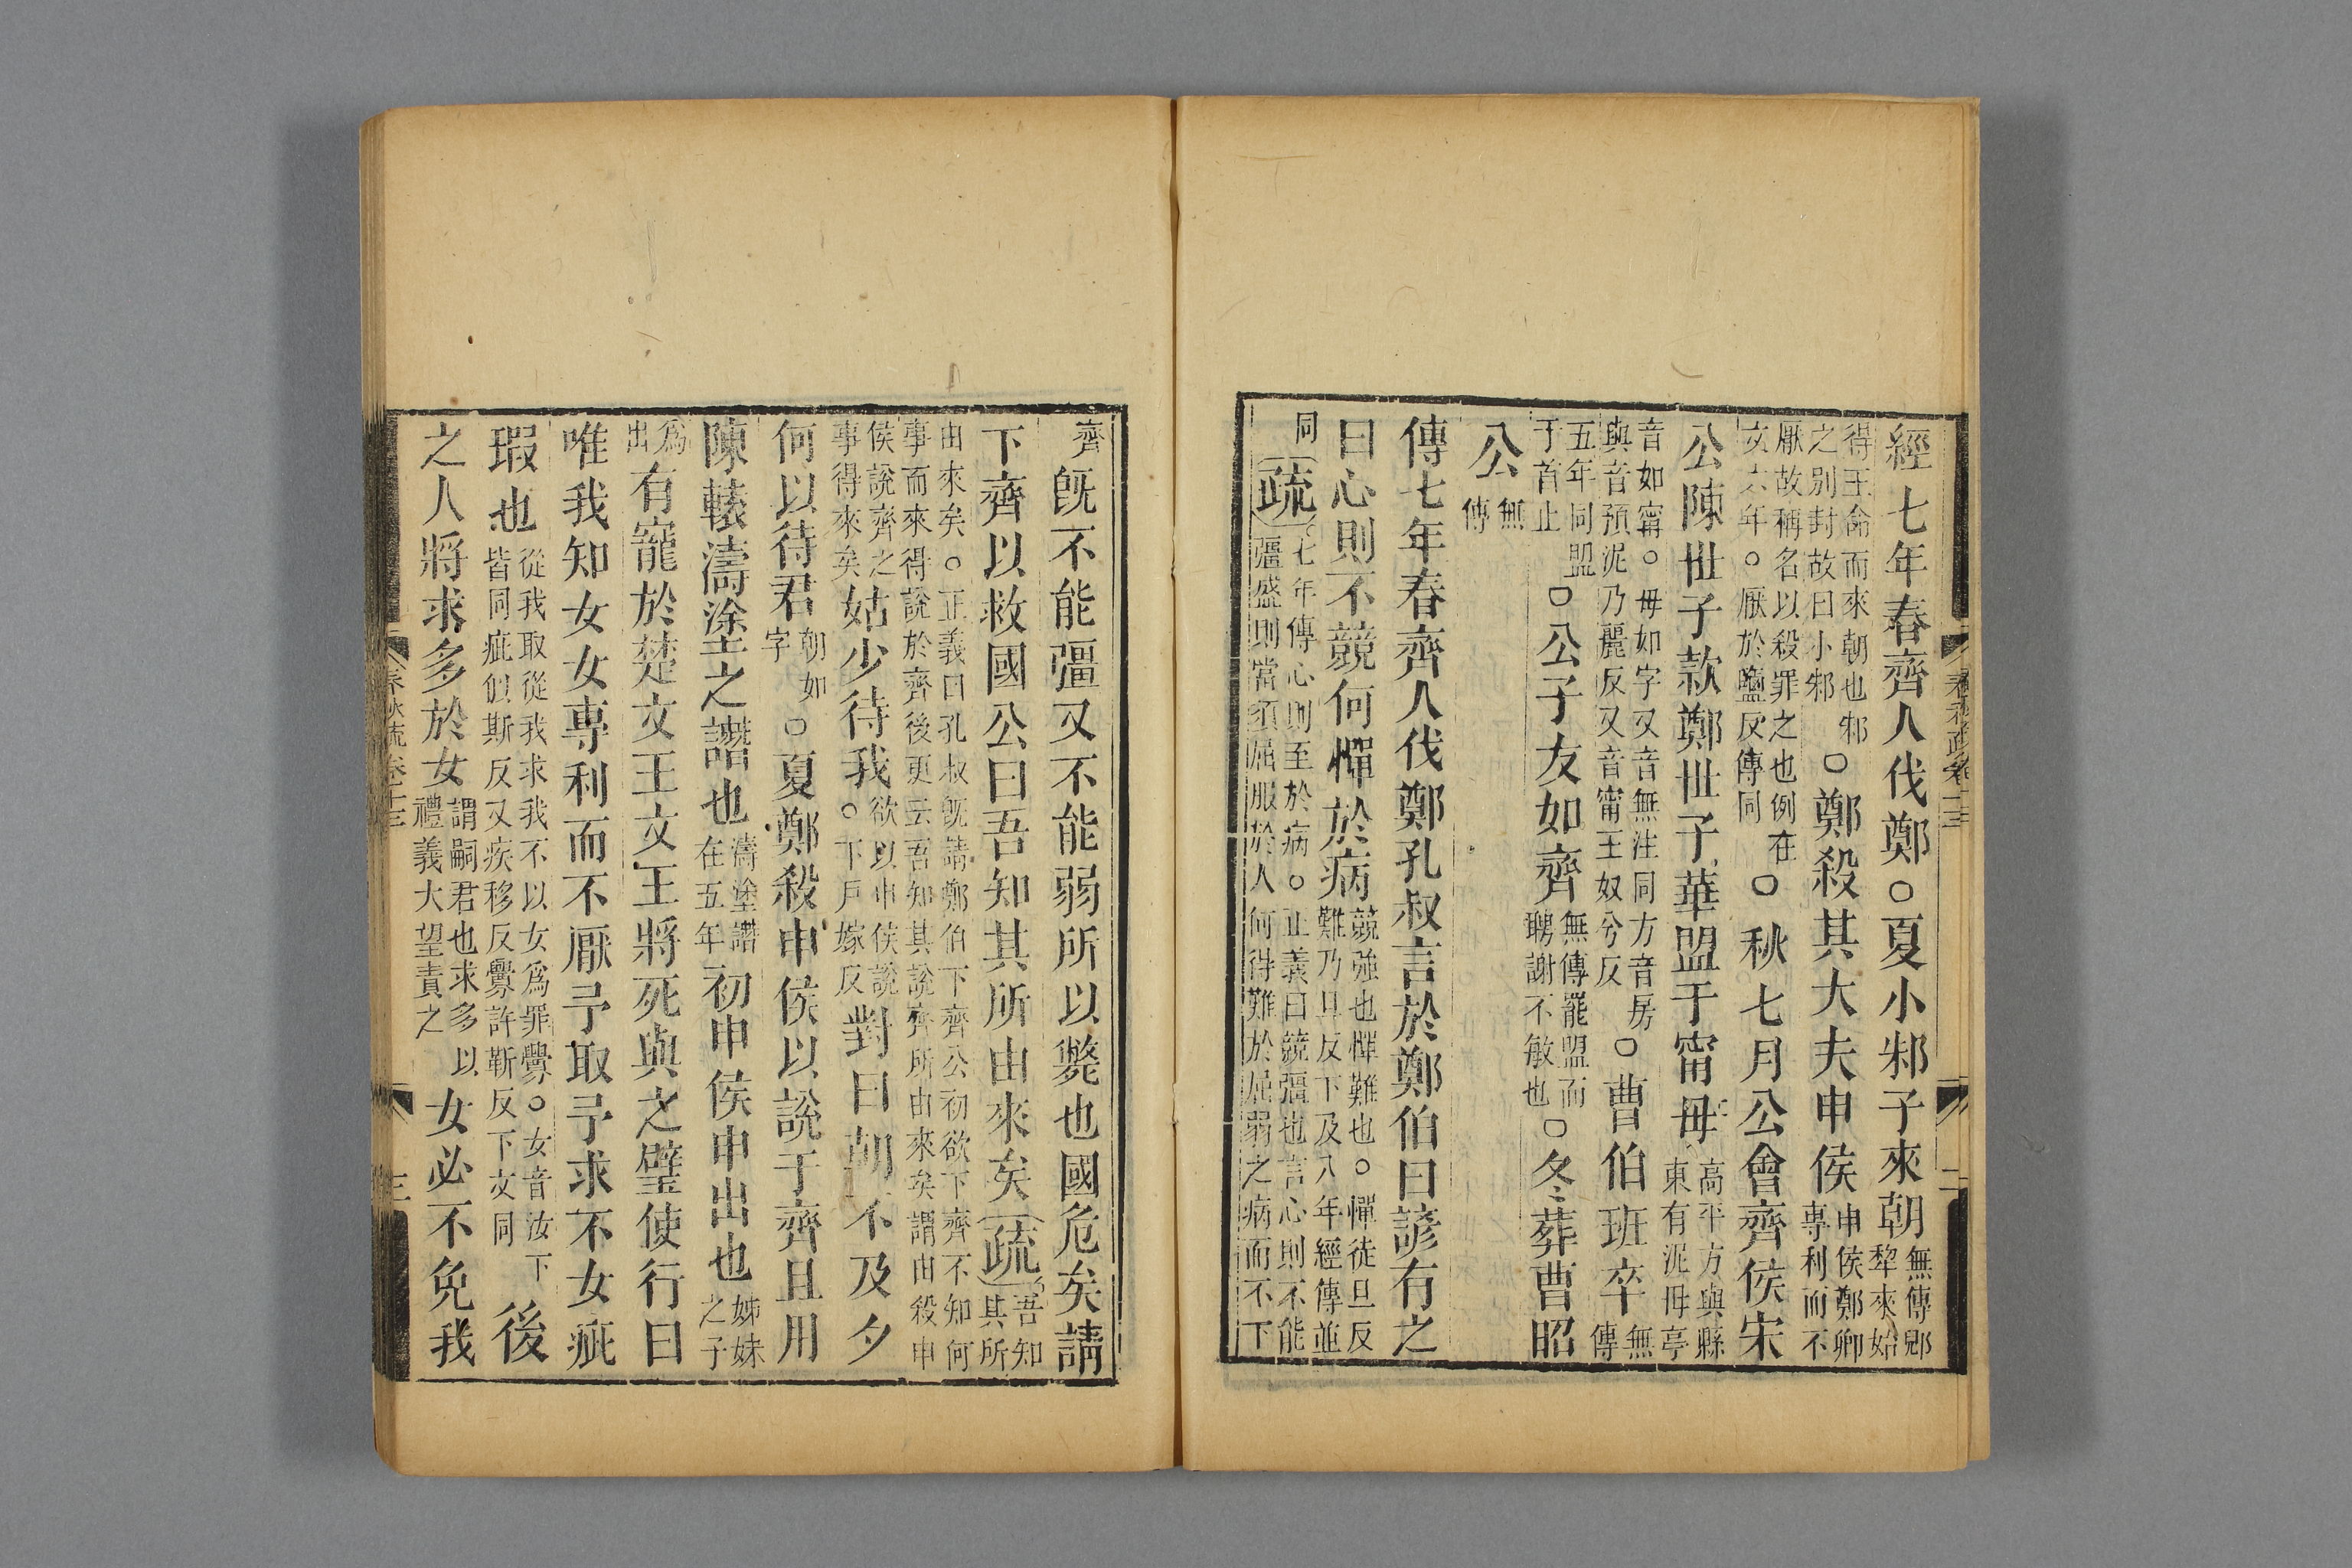 經七年春齊人伐鄭○夏小邾子來朝無傳郳犂來始
得王命而來朝也邾之別封故曰小邾○鄭殺其大夫申侯申侯鄭卿專利而不
厭故稱名以殺罪之也例在文六年○厭於鹽反傳同○秋七月公會齊侯宋
公陳世子款鄭世子華盟于甯母高平方與縣東有泥母亭
音如甯○毋如字又音無注同方音房與音預泥乃麗反又音甯王奴兮反○曹伯班卒無傳
五年同盟于首止○公子友如齊無傳罷盟而聘謝不敏也○冬葬曹昭
公無傳
傳七年春齊人伐鄭孔叔言於鄭伯曰諺有之
曰心則不競何憚於病競強也憚難也○憚徒旦反難乃旦反下及八年經傳並
同疏七年傳心則至於病○正義曰競彊也言心則不能彊盛則當須屈服於人何得難於屈弱之病而不下
齊既不能彊又不能弱所以斃也國危矣請
下齊以救國公曰吾知其所由來矣疏吾知其所
由來矣○正義曰孔叔既請鄭伯下齊公初欲下齊不知何事而來得說於齊後更云吾知其說齊所由來矣謂由殺申
侯說齊之事得來矣姑少待我欲以申侯說○下戶嫁反對曰朝不及夕
何以待君朝如字○夏鄭殺申侯以說于齊且用
陳轅濤塗之譖也濤塗譖在五年初申侯申出也姊妹之子
爲出有寵於楚文王文王將死與之璧使行曰
唯我知女女專利而不厭予取予求不女疵
瑕也從我取從我求我不以女爲罪釁○女音汝下皆同疵似斯反又疾移反釁許靳反下文同後
之人將求多於女謂嗣君也求多以禮義大望責之女必不免我
春秋疏卷十三
三
春秋疏卷十三
二